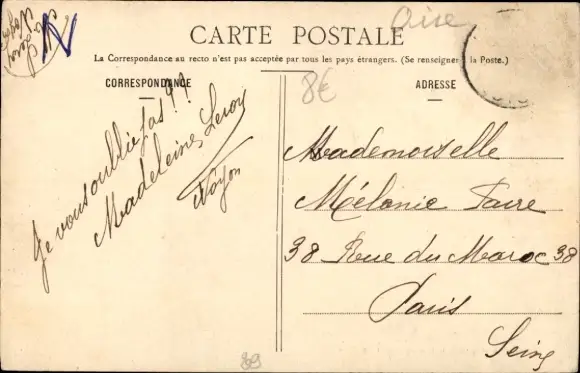 Oise
CARTE POSTALE
La Correspondance au recto n'est pas acceptée par tous les pays étrangers. (Se renseigner à la Poste.)
CORRESPONDANCE
ADRESSE
8€
Je vous oublie pas ??
Madeleine Leroy
Noyon
Mademoiselle
Mélanie Faire
38 Rue du Maroc 38
Paris
Seine